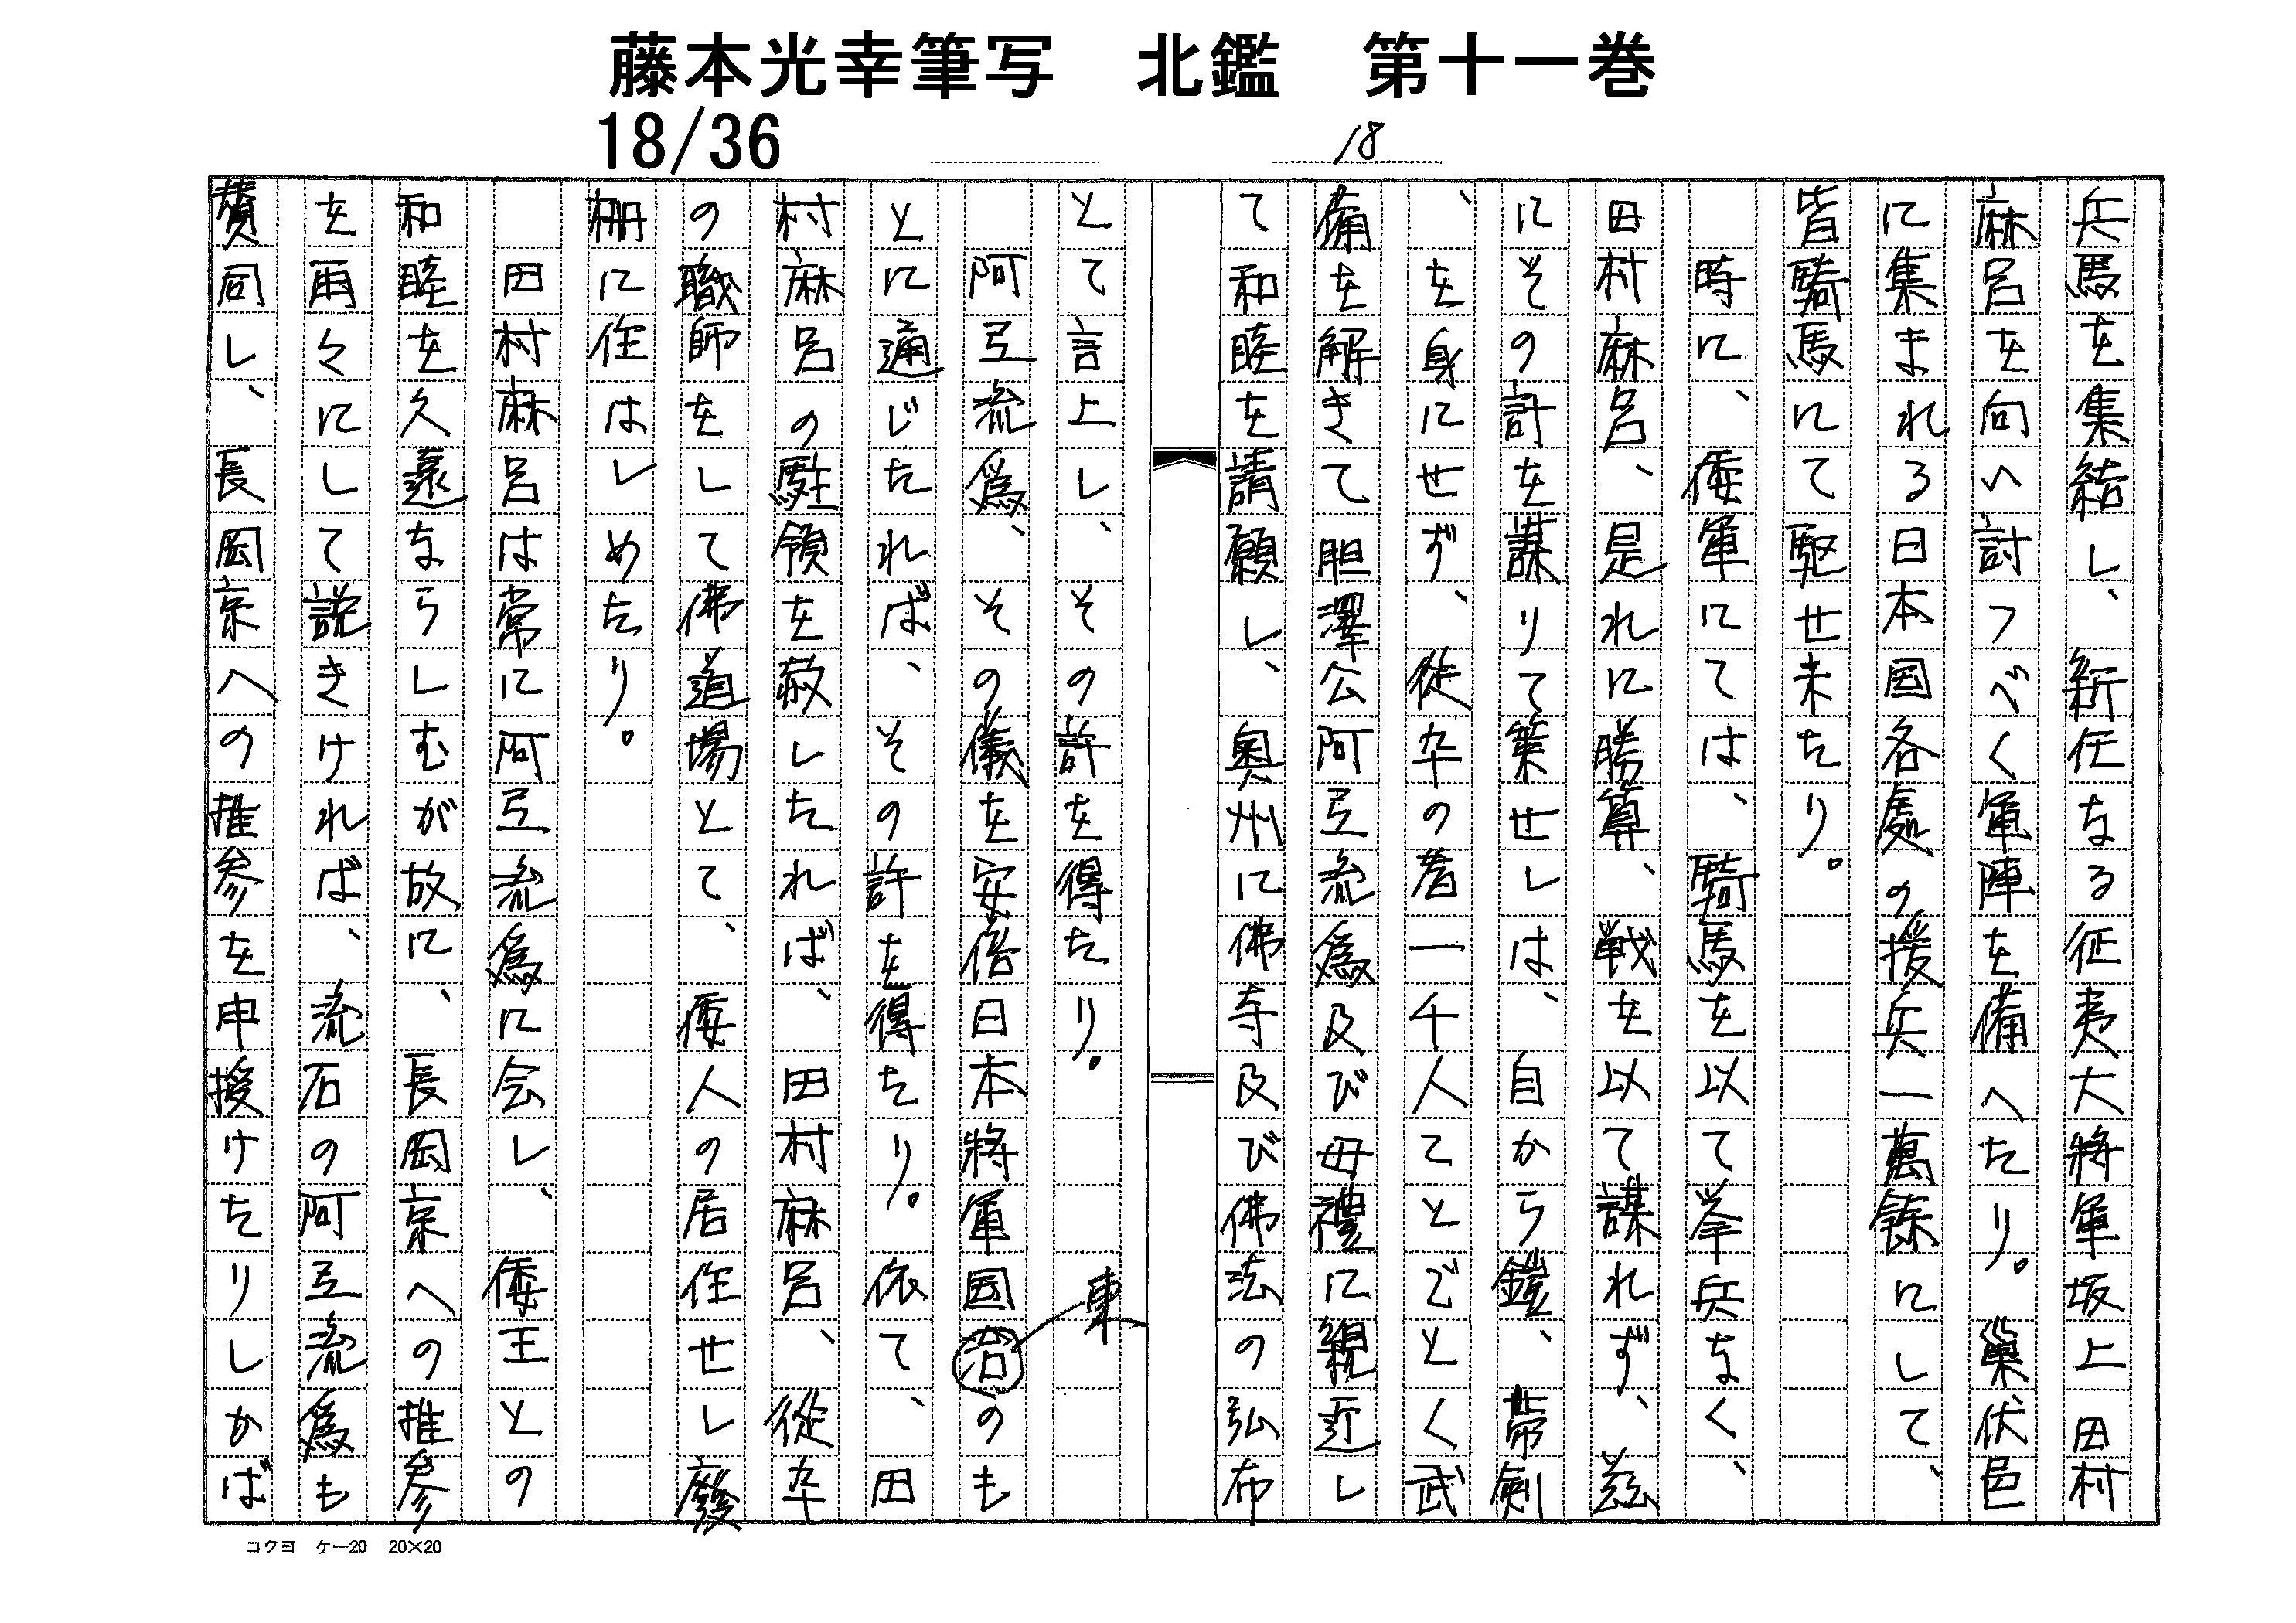 藤本光幸筆写　北鑑　第十一巻
18/36
18
兵馬を集結し、新任なる征夷大将軍坂上田村
麻呂を向へ討つべく軍陣を備へたり。巣伏邑
に集まれる日本国各處の援兵一萬餘にして、
皆騎馬にて駆せ来たり。
時に、倭軍にては、騎馬を以て挙兵なく、
田村麻呂、是れに勝算、戦を以て謀れず、茲
にその計を謀りて策せしは、自から鎧、帯剣
、を身にせず、徒卆の者一千人てとどとく武
備を解きて胆澤公阿弖流爲及び母禮に親近し
て和睦を請願し、奥州に佛寺及び佛法の弘布
とて言上し、その許を得たり。
阿弖流爲、その儀を安倍日本将軍国治のも
東
とに通じたれば、その許を得たり。依て、田
村麻呂の駐領を赦したれば、田村麻呂、従卆
の職師をして佛道場とて、倭人の居住せし廢
柵に住はしめたり。
田村麻呂は常に阿弖流爲に会し、倭王との
和睦を久遠ならしむが故に、長岡京への推参
を再々にして説きければ、流石の阿弖流爲も
賛同し、長岡京への推参を申授けたりしかば
コクヨ　ケー20　20×20